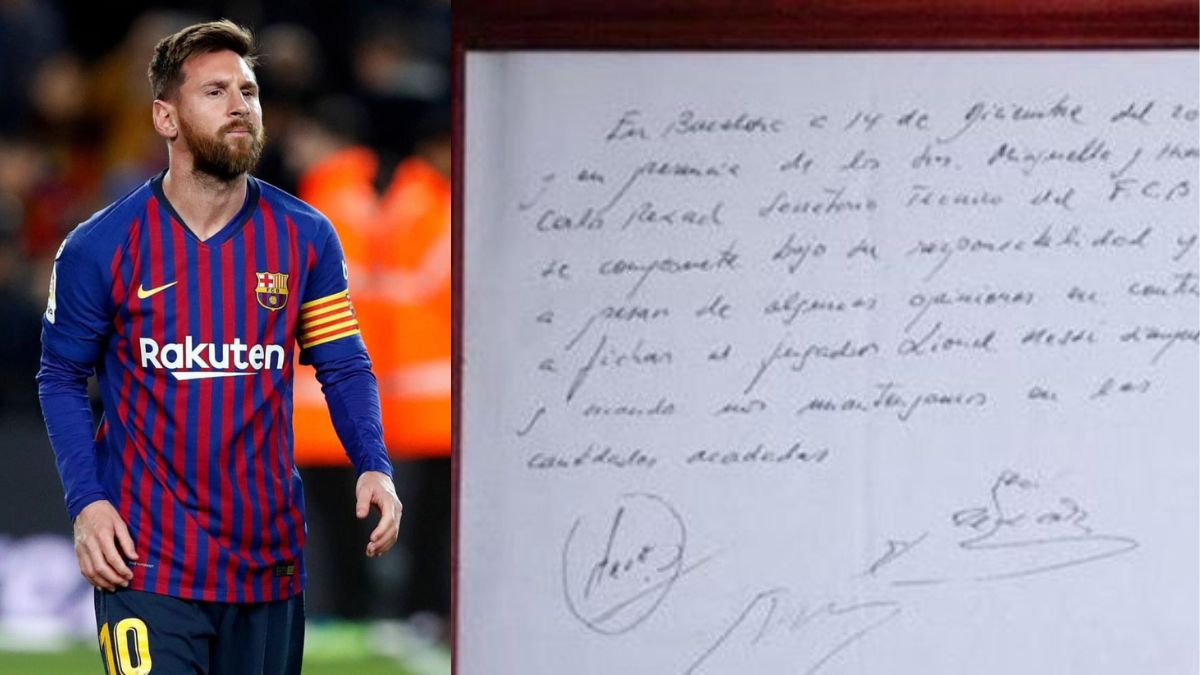 Rakuten
10
En Barcelona a 14 de Diciembre del 20
y en presencia de los Sres. Minguella y
Carlos Rexach Secretario Tecnico del F.C.B
se compromete bajo su responsabilidad y
a pesar de algunas opiniones en contra
a fichar al jugador Lionel Messi siempre
y cuando nos mantengamos en las
cantidades acordadas